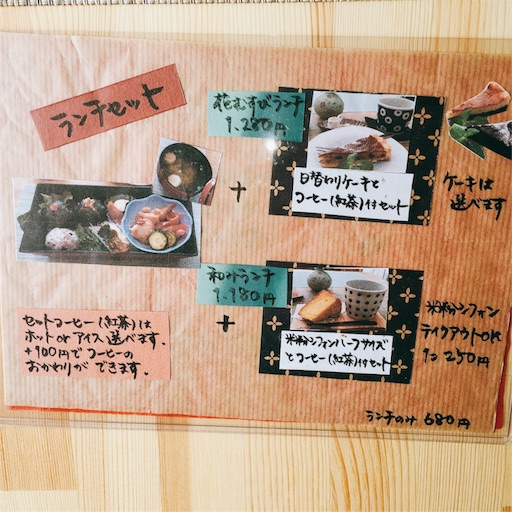 ランチセット
花むすびランチ
1,280円
日替わりケーキと
コーヒー(紅茶)付セット
ケーキは
選べます
和みランチ
1,180円
米粉シフォンハーフサイズ
とコーヒー(紅茶)付セット
米粉シフォン
テイクアウトOK
1コ 250円
セットコーヒー(紅茶)は
ホット or アイス 選べます。
+100円で コーヒーの
おかわりが できます。
ランチのみ 680円